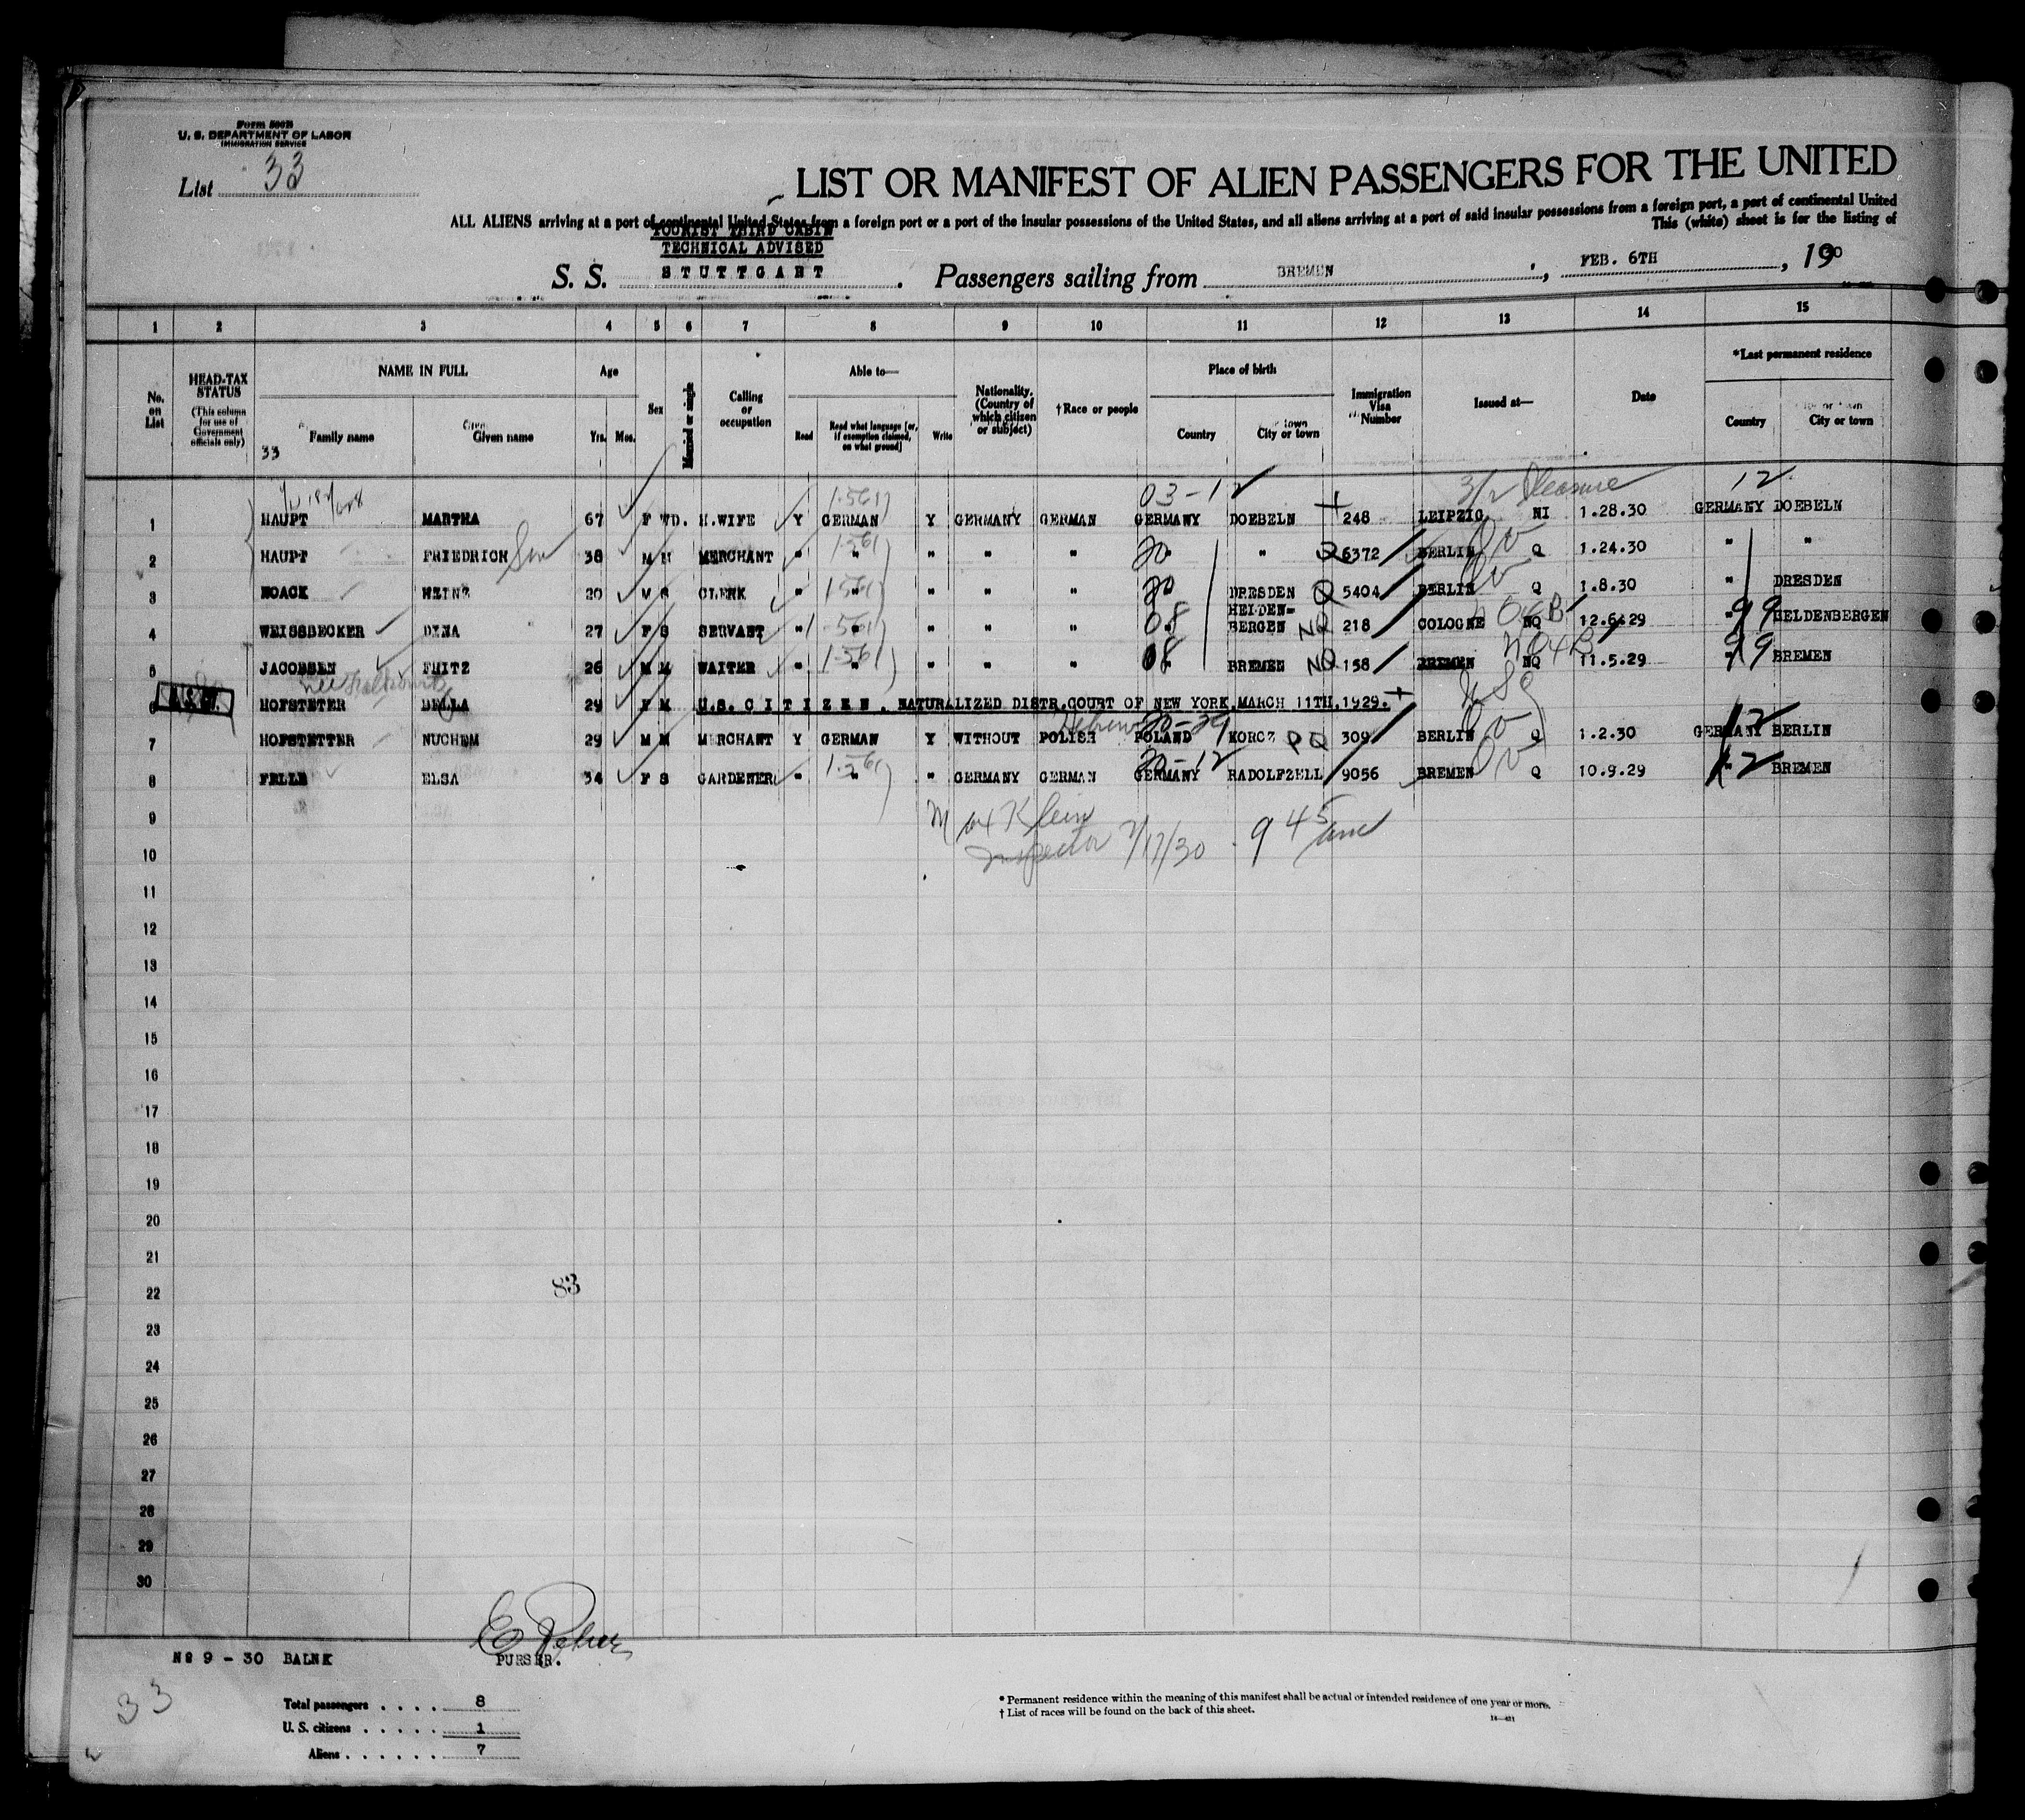 Form 500B
U. S. DEPARTMENT OF LABOR
IMMIGRATION SERVICE
List 33
LIST OR MANIFEST OF ALIEN PASSENGERS FOR THE UNITED
ALL ALIENS arriving at a port of continental United States from a foreign port or a port of the insular possessions of the United States, and all aliens arriving at a port of said insular possessions from a foreign port, a port of continental United
This (white) sheet is for the listing of
TOURIST THIRD CABIN
TECHNICAL ADVISED
S. S. STUTTGART. Passengers sailing from BREMEN, FEB. 6TH, 19
1 2 3 4 5 6 7 8 9 10 11 12 13 14 15
No. on List
HEAD-TAX STATUS
(This column for use of Government officials only)
NAME IN FULL
Family name
Given name
33
Age
Yrs. Mos.
Sex
Married or single
Calling or occupation
Able to—
Read
Read what language [or, if exemption claimed, on what ground]
Write
Nationality. (Country of which citizen or subject)
† Race or people
Place of birth
Country
City or town
Immigration Visa Number
Issued at—
Date
*Last permanent residence
Country
City or town
03-12 3/2 Pleasure 12
1 HAUPT MARTHA 67 F WD. H.WIFE Y GERMAN Y GERMANY GERMAN GERMANY DOEBELN 248 LEIPZIG NI 1.28.30 GERMANY DOEBELN
2 HAUPT FRIEDRICH Son 38 M M MERCHANT " " " " " " " Q 6372 BERLIN Q 1.24.30 " "
3 NOACK HEINZ 20 M S CLERK " " " " " " DRESDEN Q 5404 BERLIN Q 1.8.30 " DRESDEN
4 WEISSBECKER DINA 27 F S SERVANT " " " " " " HELDEN=
BERGEN NQ 218 COLOGNE NQ 12.6.29 " 99 GELDENBERGEN
5 JACOBSEN FRITZ 26 M M WAITER " " " " " " BREMEN NQ 158 BREMEN NQ 11.5.29 " 99 BREMEN
6 HOFSTETER BELLA 29 F M U.S. C I T I Z E N . NATURALIZED DISTR.COURT OF NEW YORK,MARCH 11TH,1929.
7 HOFSTETTER NUCHEM 29 M M MERCHANT Y GERMAN Y WITHOUT POLISH Hebrew POLAND KORCZ PQ 309 BERLIN Q 1.2.30 GERMANY BERLIN
8 FELLE ELSA 34 F S GARDENER " " " GERMANY GERMAN GERMANY RADOLFZELL 9056 BREMEN Q 10.9.29 " 12 BREMEN
9
Max Klein
Inspector 2/17/30 9 45 am
10
11
12
13
14
15
16
17
18
19
20
21
22
83
23
24
25
26
27
28
29
30
No 9 - 30 BALNK
PURSER.
33
Total passengers . . . . 8
U. S. citizens . . . . . 1
Aliens . . . . . . 7
* Permanent residence within the meaning of this manifest shall be actual or intended residence of one year or more.
† List of races will be found on the back of this sheet.
14—421